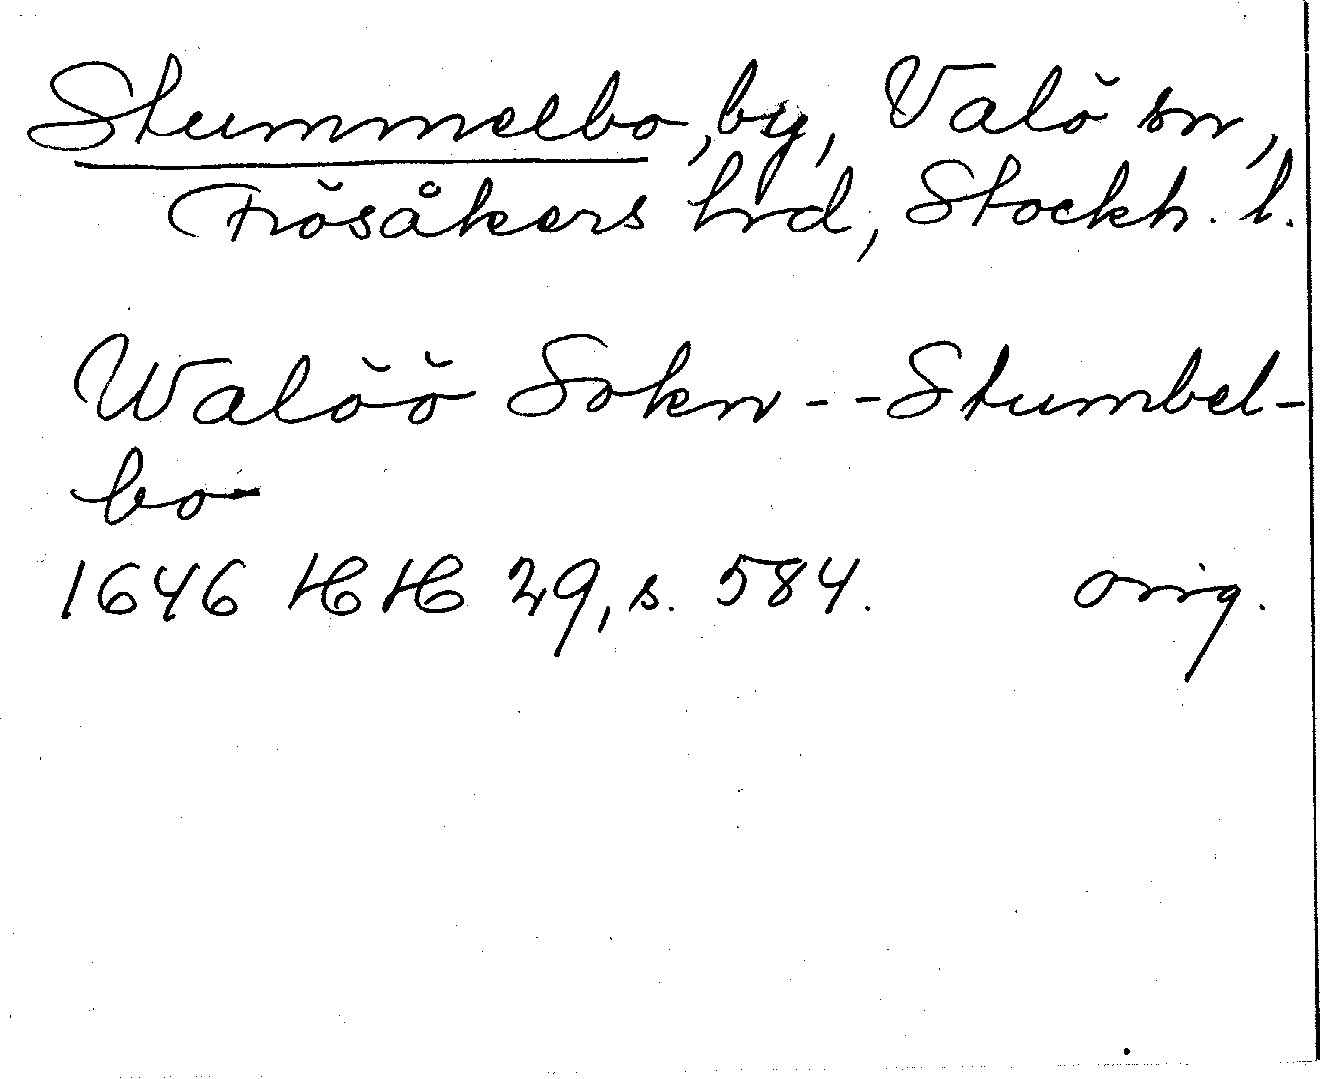 Stummelbo, by, Valö sn,
Frösåkers hrd, Stockh. l.
Walöö Sokn - - Stumbel-
bo
1646 HH 29, s. 584. orig.